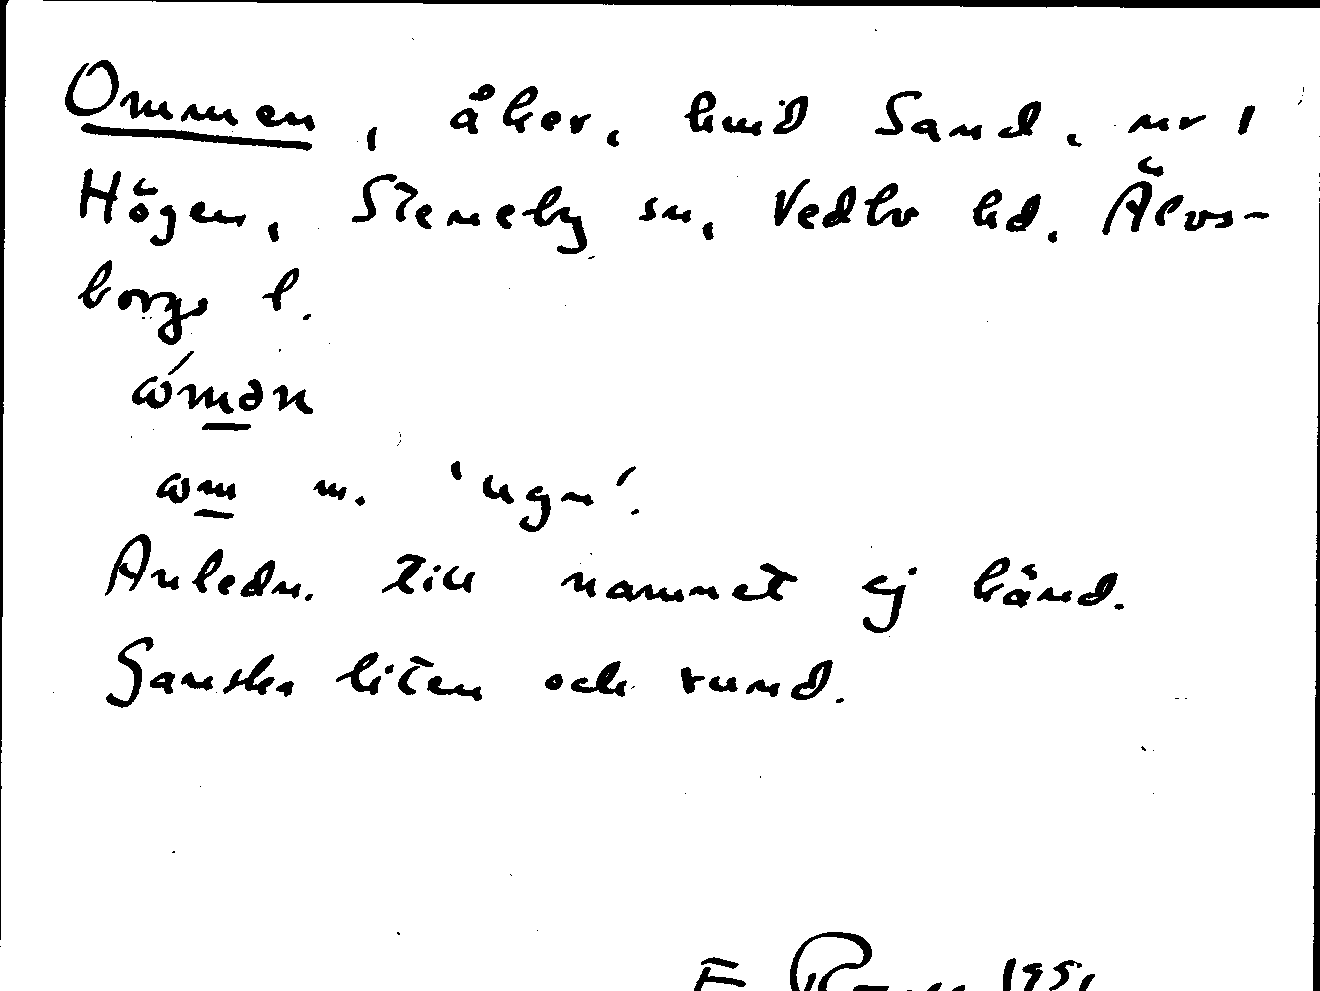 Ommen, åker, hmd Sand, nr 1
Högen, Steneby sn, Vedbo hd. Älvs-
borgs l.
ώmən
ωm m. 'ugn'.
Anledn. till namnet ej känd.
Ganska liten och rund.
1951